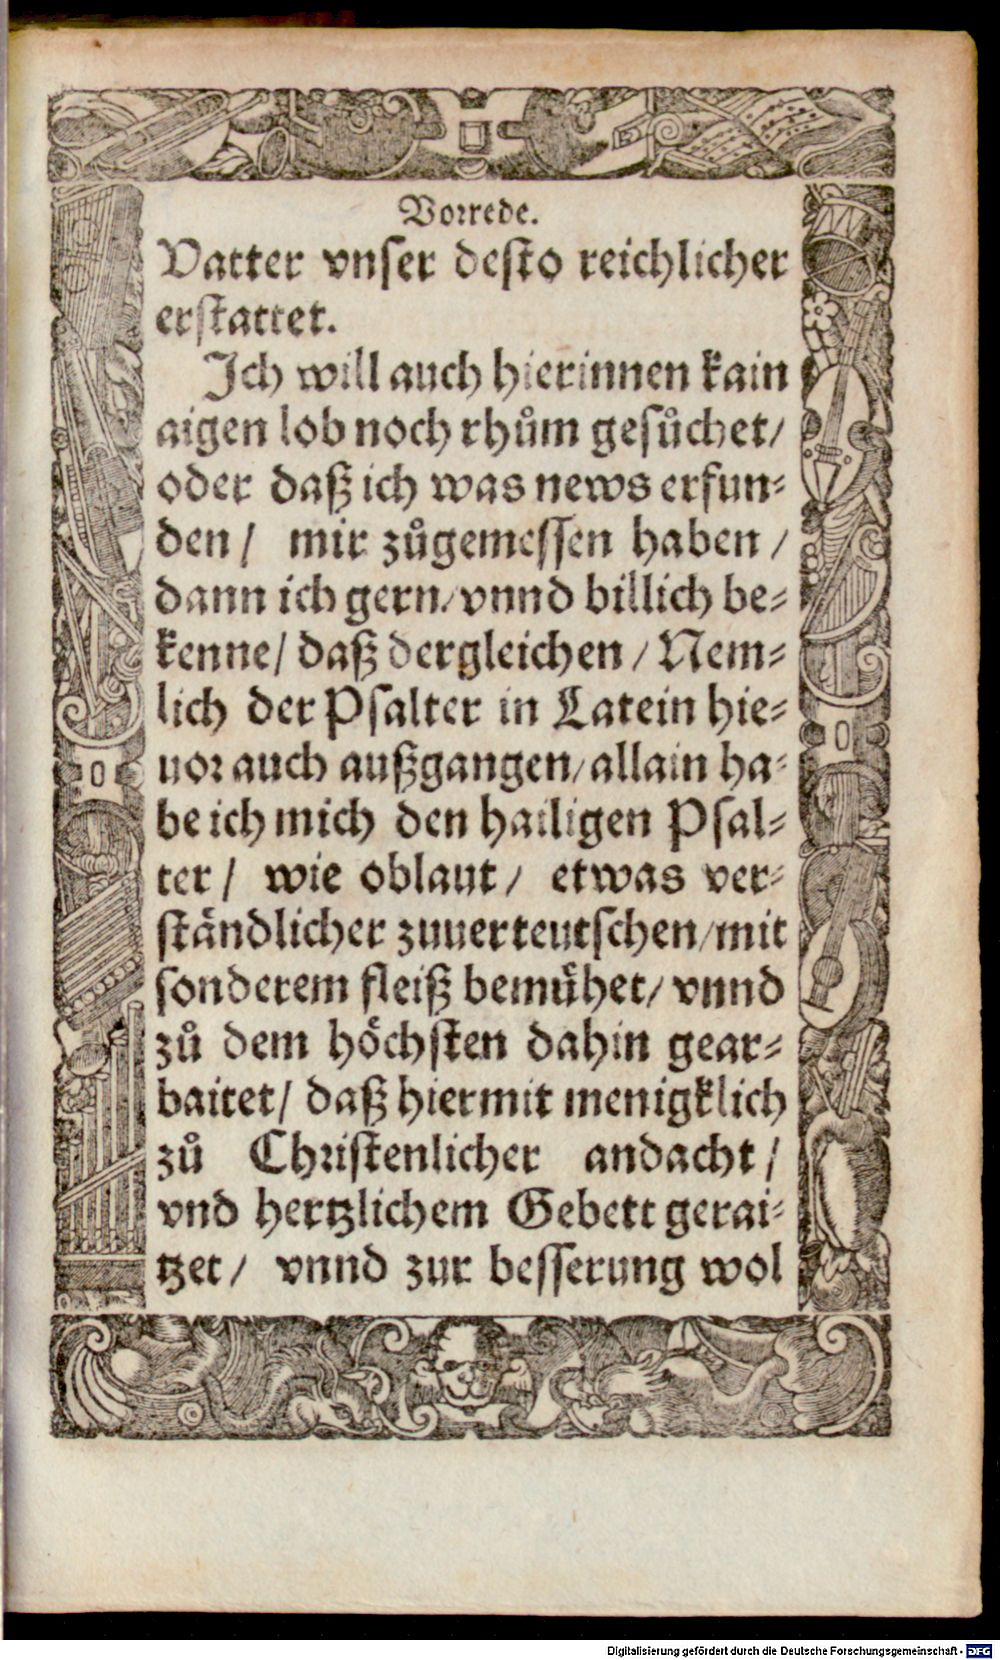 Vorrede.
Vatter vnser desto reichlicher
erstattet.
Ich will auch hierinnen kain
aigen lob noch rhům gesůchet/
oder daß ich was news erfun⸗
den/ mir zůgemessen haben/
dann ich gern/ vnnd billich be⸗
kenne/ daß dergleichen/ Nem⸗
lich der Psalter in Latein hie⸗
uor auch außgangen/ allain ha⸗
be ich mich den hailigen Psal⸗
ter/ wie oblaut/ etwas ver⸗
ständlicher zuuerteutschen/ mit
sonderem fleiß bemühet/ vnnd
zů dem höchsten dahin gear⸗
baitet/ daß hiermit menigklich
zů Christenlicher andacht/
vnd hertzlichem Gebett gerai⸗
tzet/ vnnd zur besserung wol
Digitalisierung gefördert durch die Deutsche Forschungsgemeinschaft - DFG